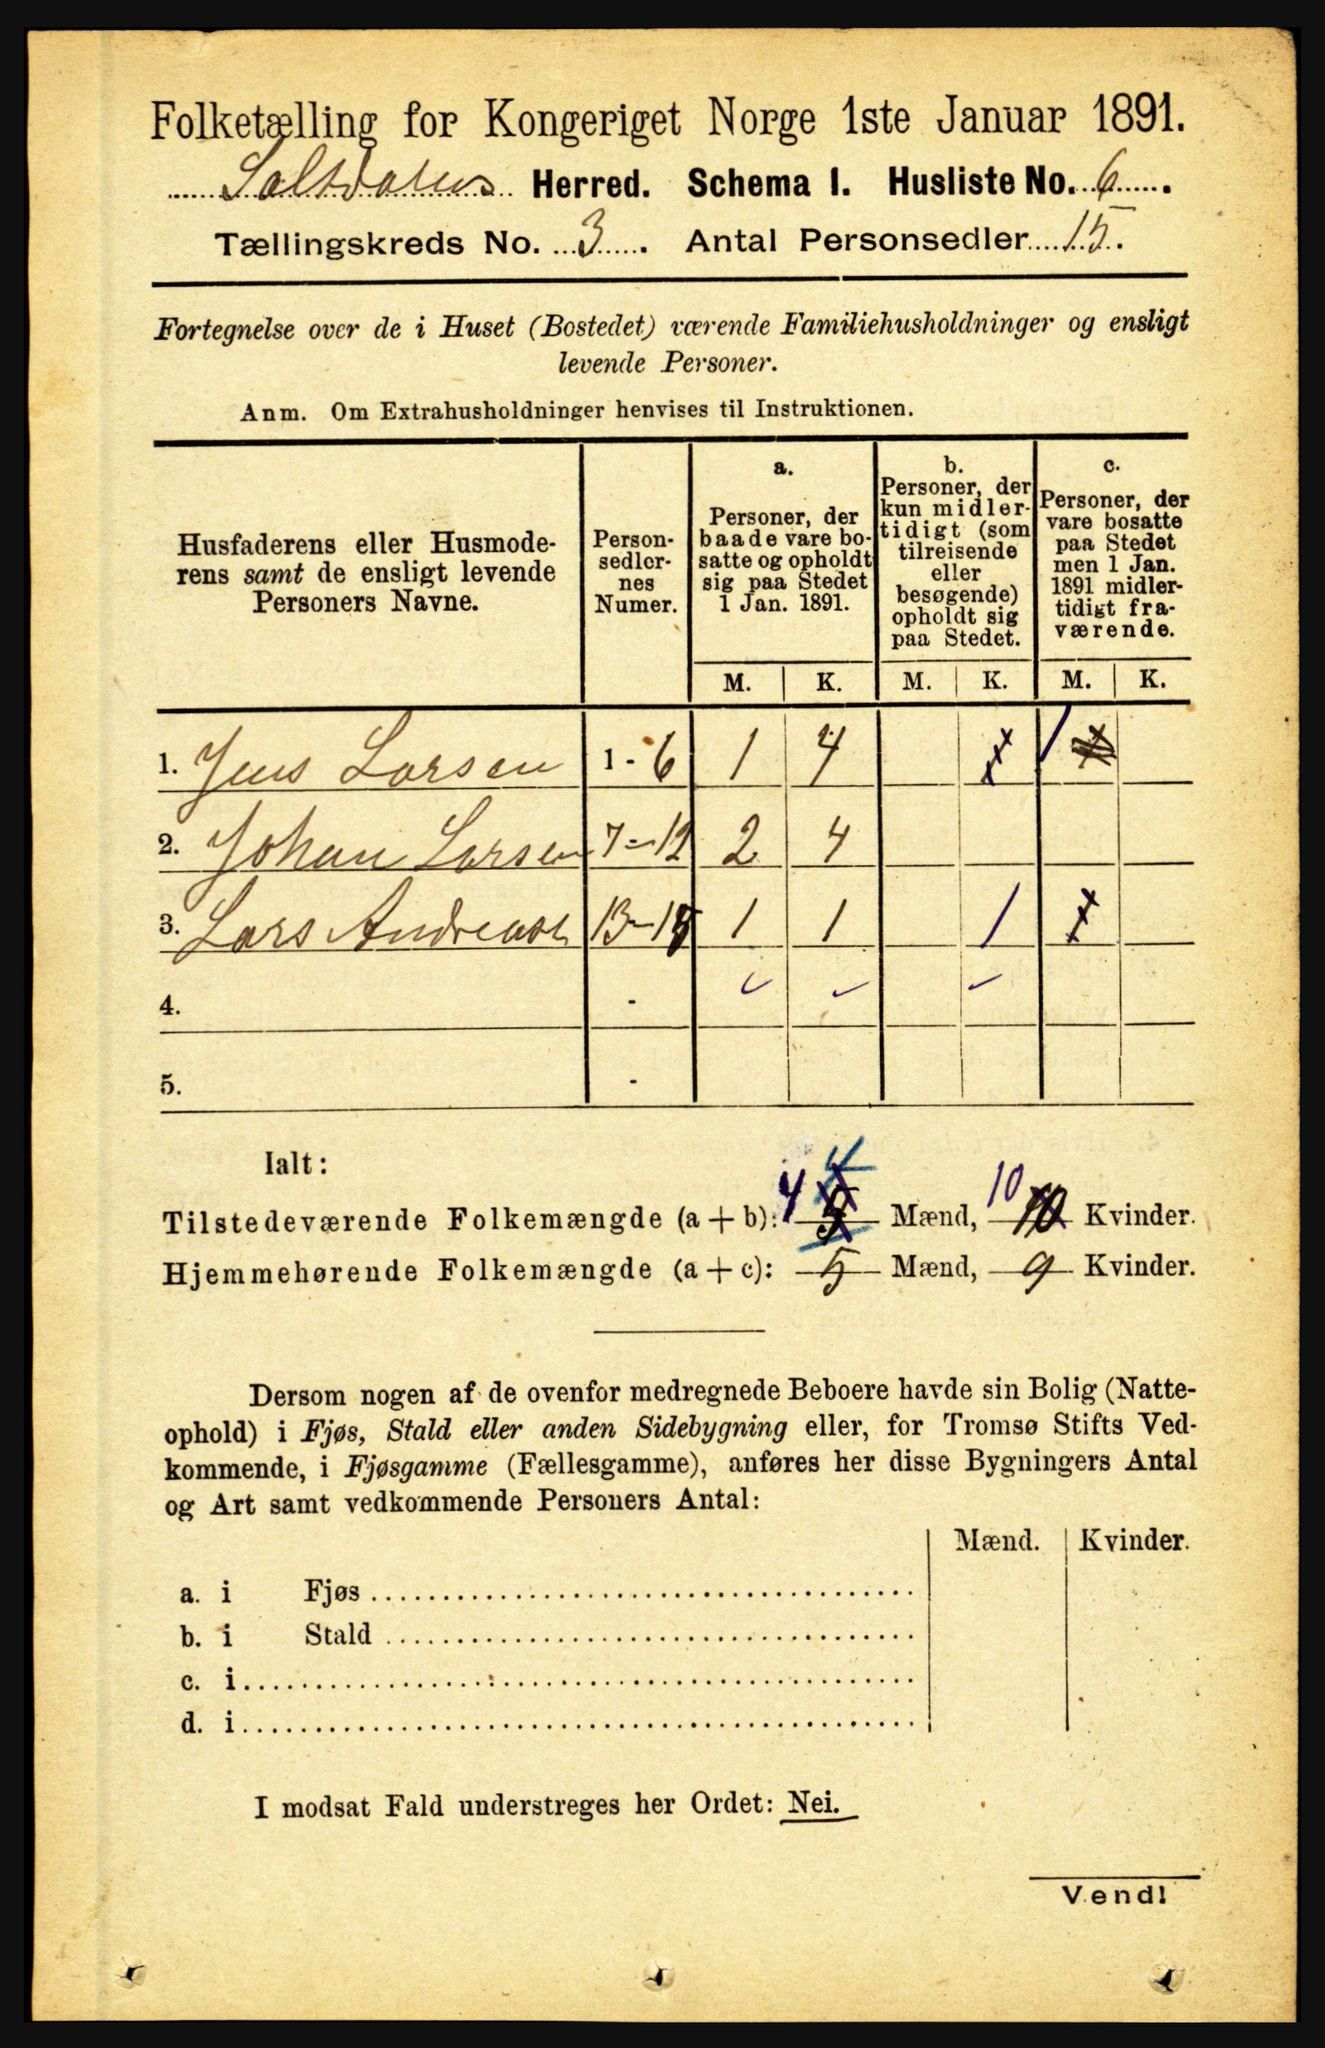 Folketælling for Kongeriget Norge 1ste Januar 1891.
Saltdalens Herred. Schema 1. Husliste No. 6.
Tællingskreds No. 3. Antal Personsedler 15.
Fortegnelse over de i Huset (Bostedet) værende Familiehusholdninger og ensligt
levende Personer.
Anm. Om Extrahusholdninger henvises til Instruktionen.
Husfaderens eller Husmode-
rens samt de ensligt levende
Personers Navne.
Person-
sedler-
nes
Numer.
a.
Personer, der
baade vare bo-
satte og opholdt
sig paa Stedet
1 Jan. 1891.
b.
Personer, der
kun midler-
tidigt (som
tilreisende
eller
besøgende)
opholdt sig
paa Stedet.
c.
Personer, der
vare bosatte
paa Stedet
men 1 Jan.
1891 midler-
tidigt fra-
værende.
M. K. M. K. M. K.
1. Jens Larsen 1 - 6 1 4 1
2. Johan Larsen 7-12 2 4
3. Lars Andreas 13-15 1 1 1
4. -
5. -
Ialt:
Tilstedeværende Folkemængde (a + b): 4 Mænd, 10 Kvinder.
Hjemmehørende Folkemængde (a + c): 5 Mænd, 9 Kvinder.
Dersom nogen af de ovenfor medregnede Beboere havde sin Bolig (Natte-
ophold) i Fjøs, Stald eller anden Sidebygning eller, for Tromsø Stifts Ved-
kommende, i Fjøsgamme (Fællesgamme), anføres her disse Bygningers Antal
og Art samt vedkommende Personers Antal:
Mænd. Kvinder.
a. i Fjøs
b. i Stald
c. i
d. i
I modsat Fald understreges her Ordet: Nei.
Vend!